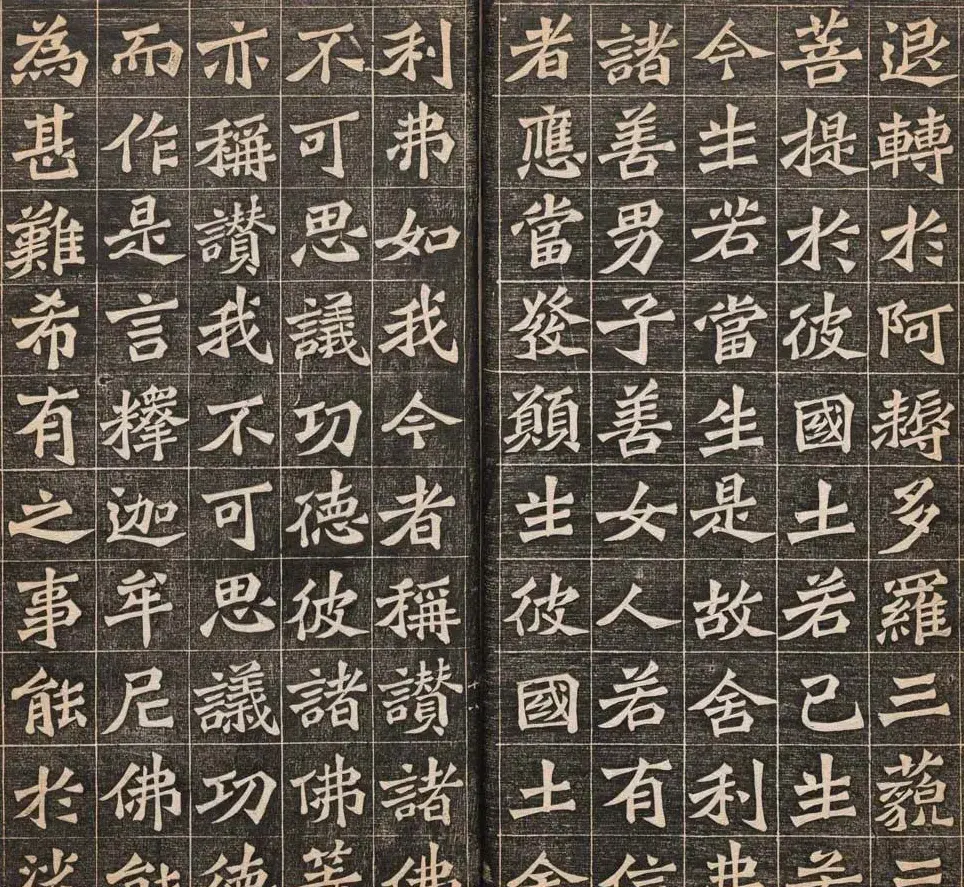 退轉於阿耨多羅三藐三
菩提於彼國土若已生若
今生若當生是故舍利弗
諸善男子善女人若有信
者應當發願生彼國土舍
利弗如我今者稱讚諸佛
不可思議功德彼諸佛等
亦稱讚我不可思議功德
而作是言釋迦牟尼佛能
為甚難希有之事能於娑